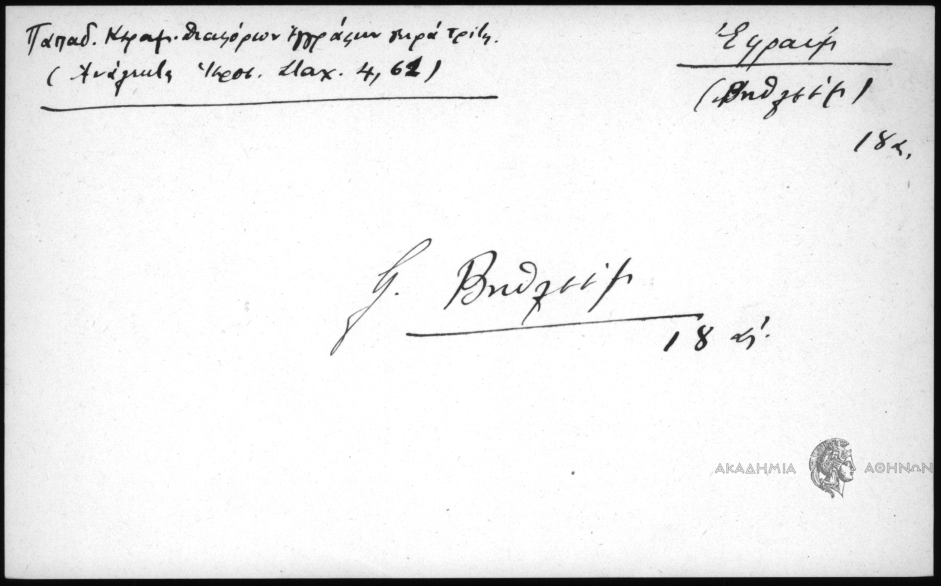 Παπαδ. Κεραμ. Διαφόρων ἐγγράφων σειρὰ τρίτη.
(Ἀνάλεκτα Ἱεροσ. Σταχ. 4, 61)
Ἐφραίμ
(Βηθλεέμ)
18 α.
Βηθλεέμ
18 αἰ.
ΑΚΑΔΗΜΙΑ ΑΘΗΝΩΝ